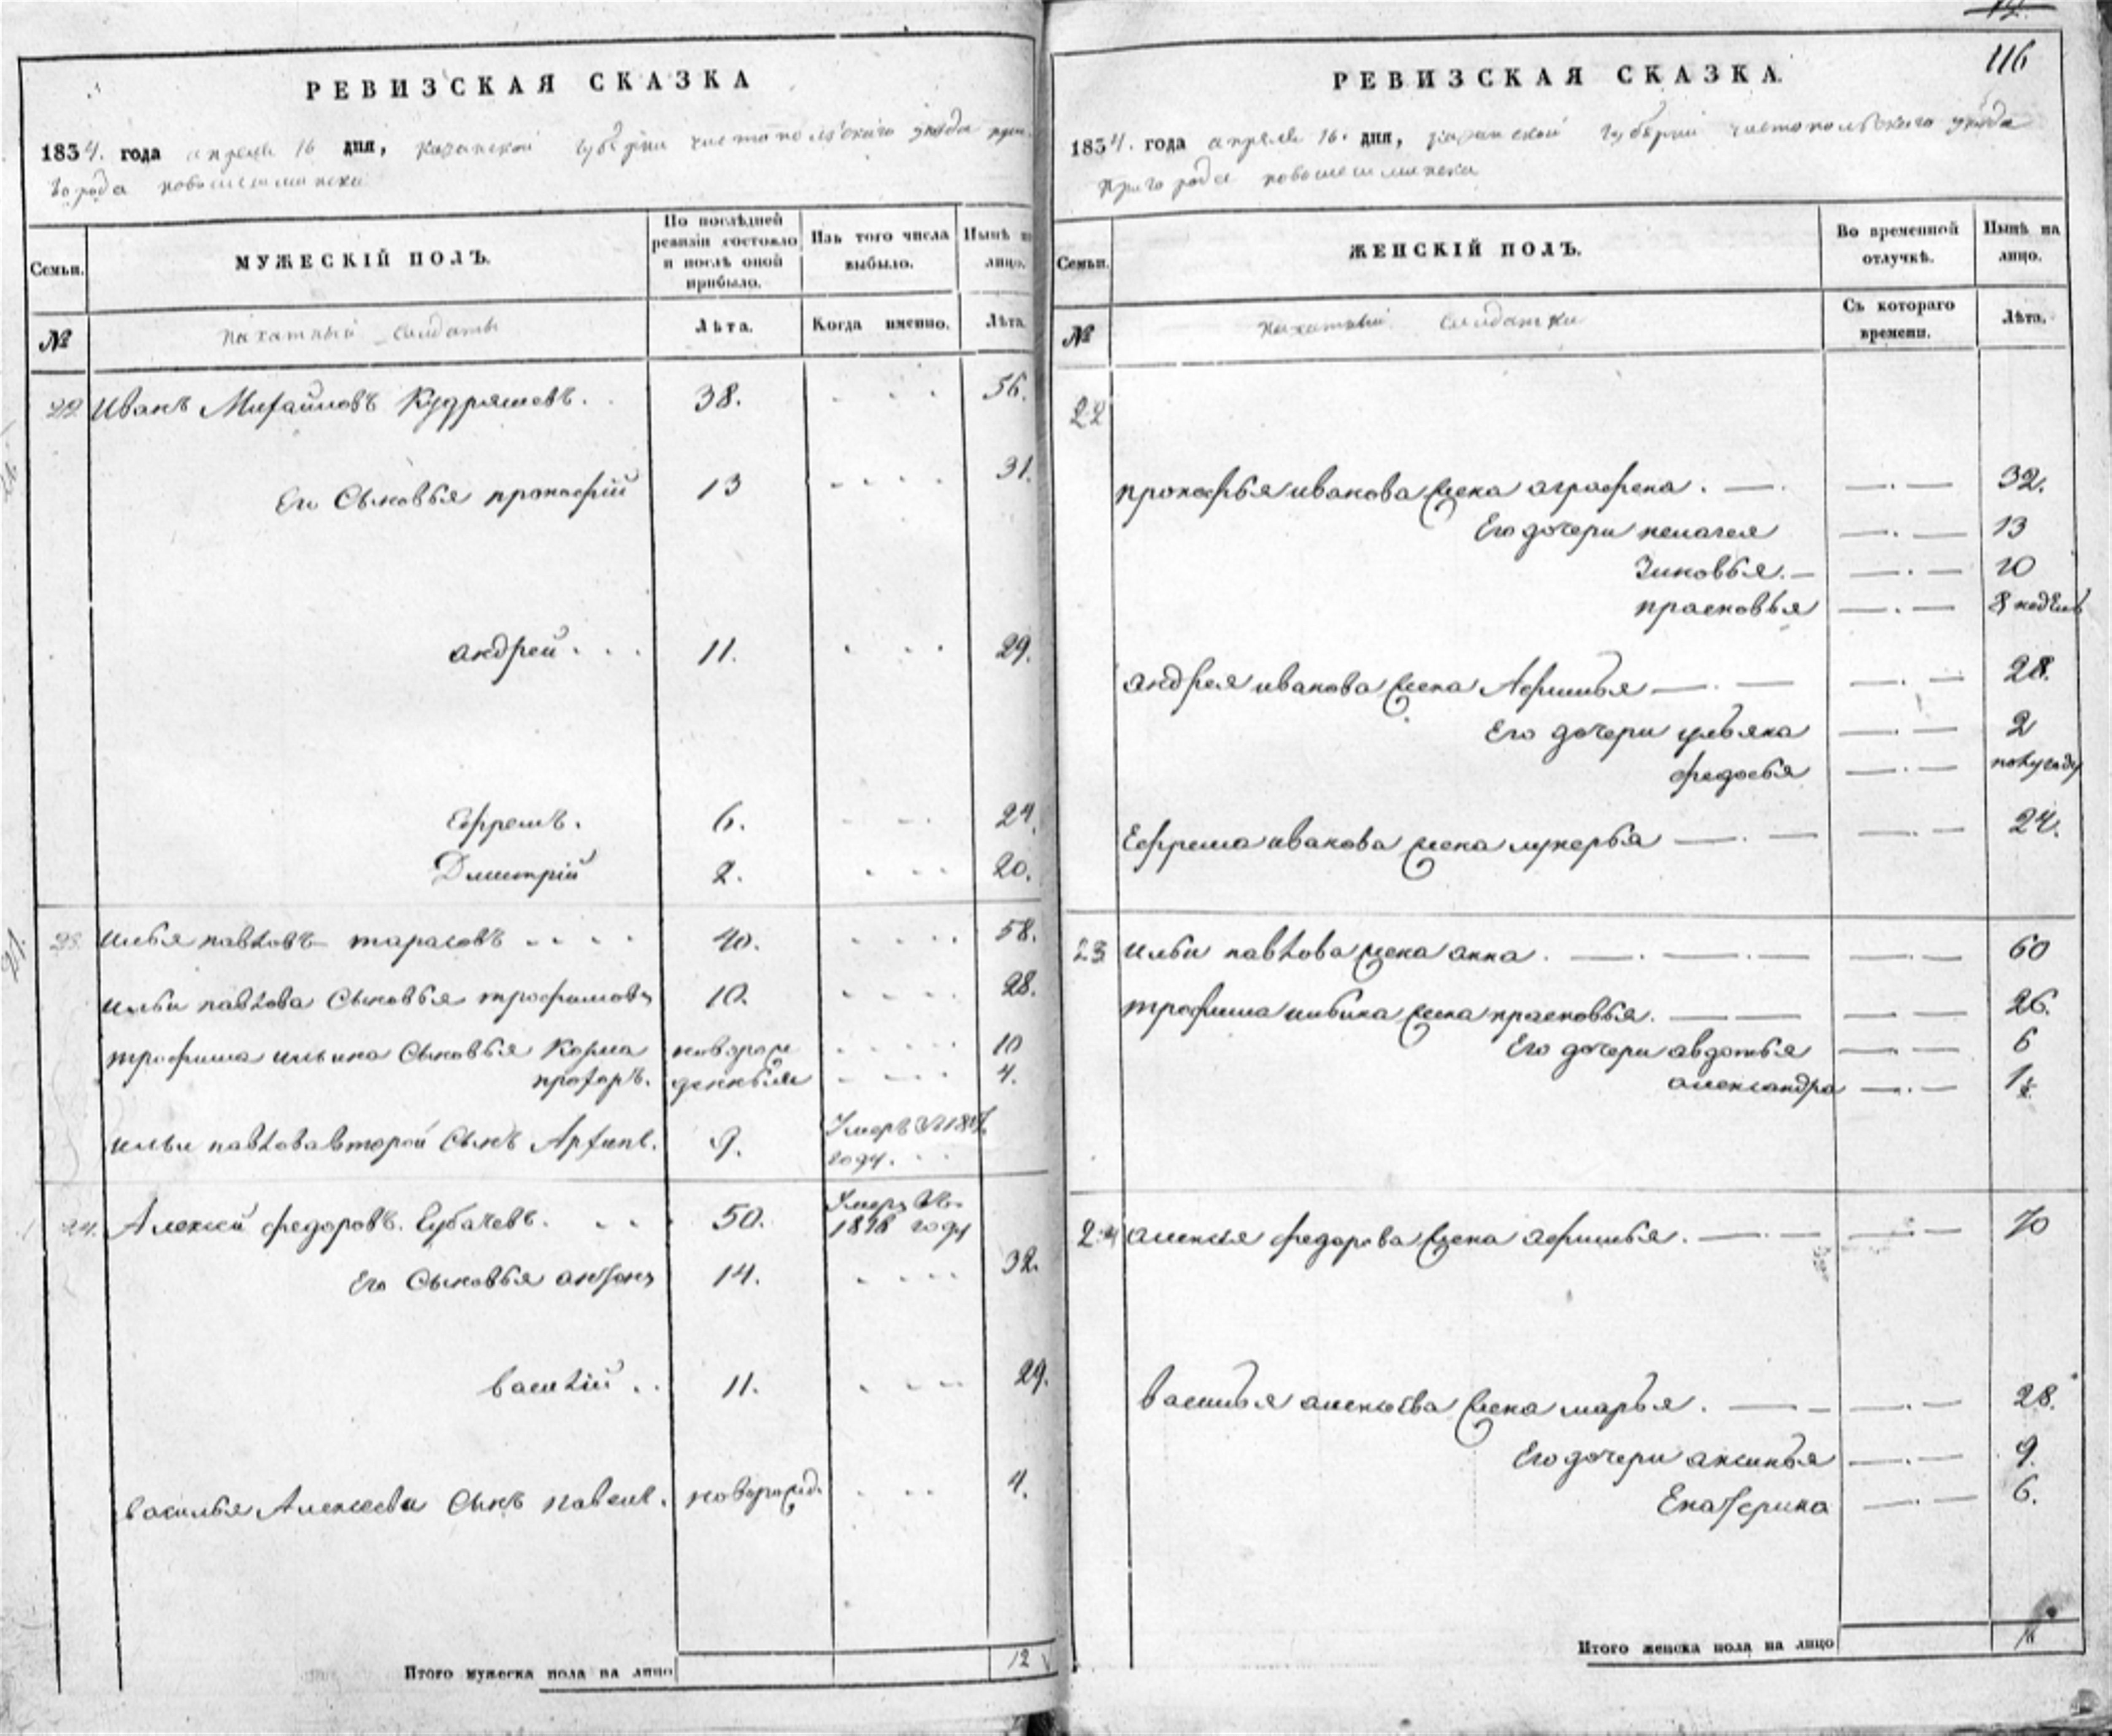 РЕВИЗСКАЯ СКАЗКА
1834. года апреля 16 дня, казанской губернии чистопольскаго уезда при-
города новошешминска
Семьи.
МУЖЕСКІЙ ПОЛЪ.
По послѣдней ревизіи состояло и послѣ оной прибыло.
Изъ того числа выбыло.
Нынѣ на лицо.
№
пахатный солдаты
Лѣта.
Когда именно.
Лѣта.
22 Иванъ Михайловъ Кудряшевъ. 38. 56.
Его Сыновья прокофій 13 31.
андрей 11. 29.
Ефремъ. 6. 24.
Дмитрій 2. 20.
21.
23. илья павловъ тарасовъ 40. 58.
ильи павлова Сыновья трофимовъ 10. 28.
трофима ильина Сыновья Козма новорож 10
прохоръ. денныя 4.
ильи павлова второй Сынъ Архипъ. 9. Умеръ въ
году.
24. Алексей федоровъ. 50. Умеръ въ
году
Его Сыновья антонъ 14. 32.
василій 11. 29.
василья Алексеева Сынъ павелъ. новорожд. 4.
Итого мужеска пола на лицо 12
116
РЕВИЗСКАЯ СКАЗКА.
1834. года апреля 16. дня, казанской губерніи чистопольскаго уезда
пригорода новошешминска
Семьи.
ЖЕНСКІЙ ПОЛЪ.
Во временной отлучкѣ.
Нынѣ на лицо.
№
пахатный солдатки
Съ котораго времени.
Лѣта.
22
прокофья иванова жена аграфена. 32.
Его дочери пелагея 13
Зиновья. 10
прасковья 8 недель
андрея иванова жена Афимья 28.
Его дочери ульяна 2
федосья полугоду
Ефрема иванова жена лукерья 24.
23 ильи павлова жена анна. 60
трофима ильина жена прасковья. 26.
Его дочери авдотья 6
александра 1½
24 алексея федорова жена афимья. 70
василья алексеева жена марья. 28.
Его дочери аксинья 9.
Екатерина 6.
Итого женска пола на лицо